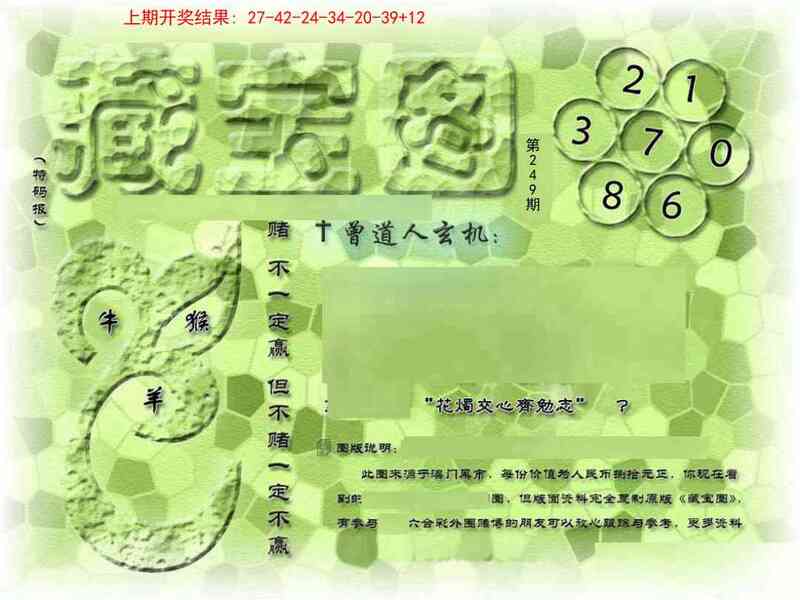 上期开奖结果: 27-42-24-34-20-39+12
藏宝图
(特码报)
第249期
2
1
3
7
0
8
6
曾道人玄机:
牛
猴
羊
赌不一定赢但不赌一定不赢
"花烛交心齐勉志" ?
图版说明:
此图来源于澳门黑市,每份价值为人民币捌拾元正,你现在看
到的 图,但版面资料完全复制原版《藏宝图》,
有参与 六合彩外围赌博的朋友可以放心跟踪与参考,更多资料